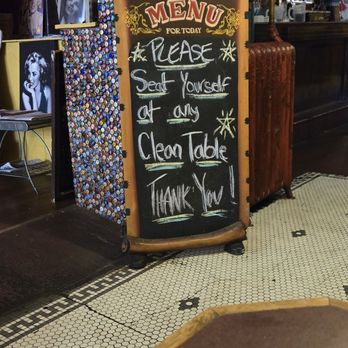 MENU
FOR TODAY
PLEASE
Seat Yourself
at any
Clean Table
THANK You!